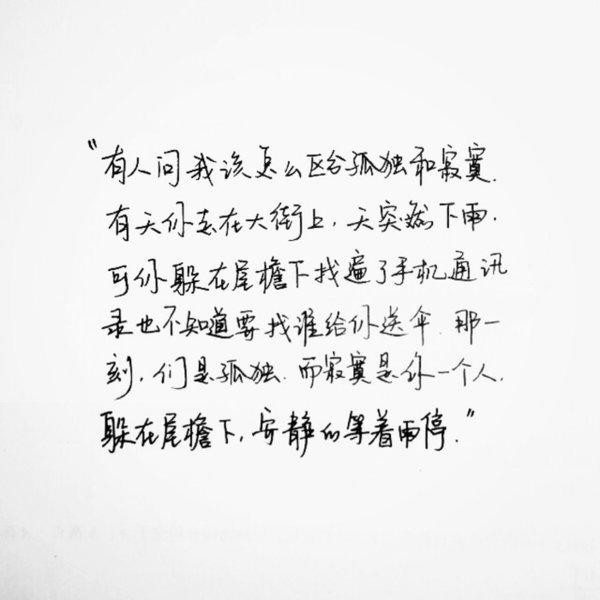 "有人问我该怎么区分孤独和寂寞.
有天你走在大街上,天突然下雨.
可你躲在屋檐下找遍了手机通讯
录也不知道要找谁给你送伞.那一
刻,你是孤独.而寂寞是你一个人.
躲在屋檐下,安静的等着雨停."